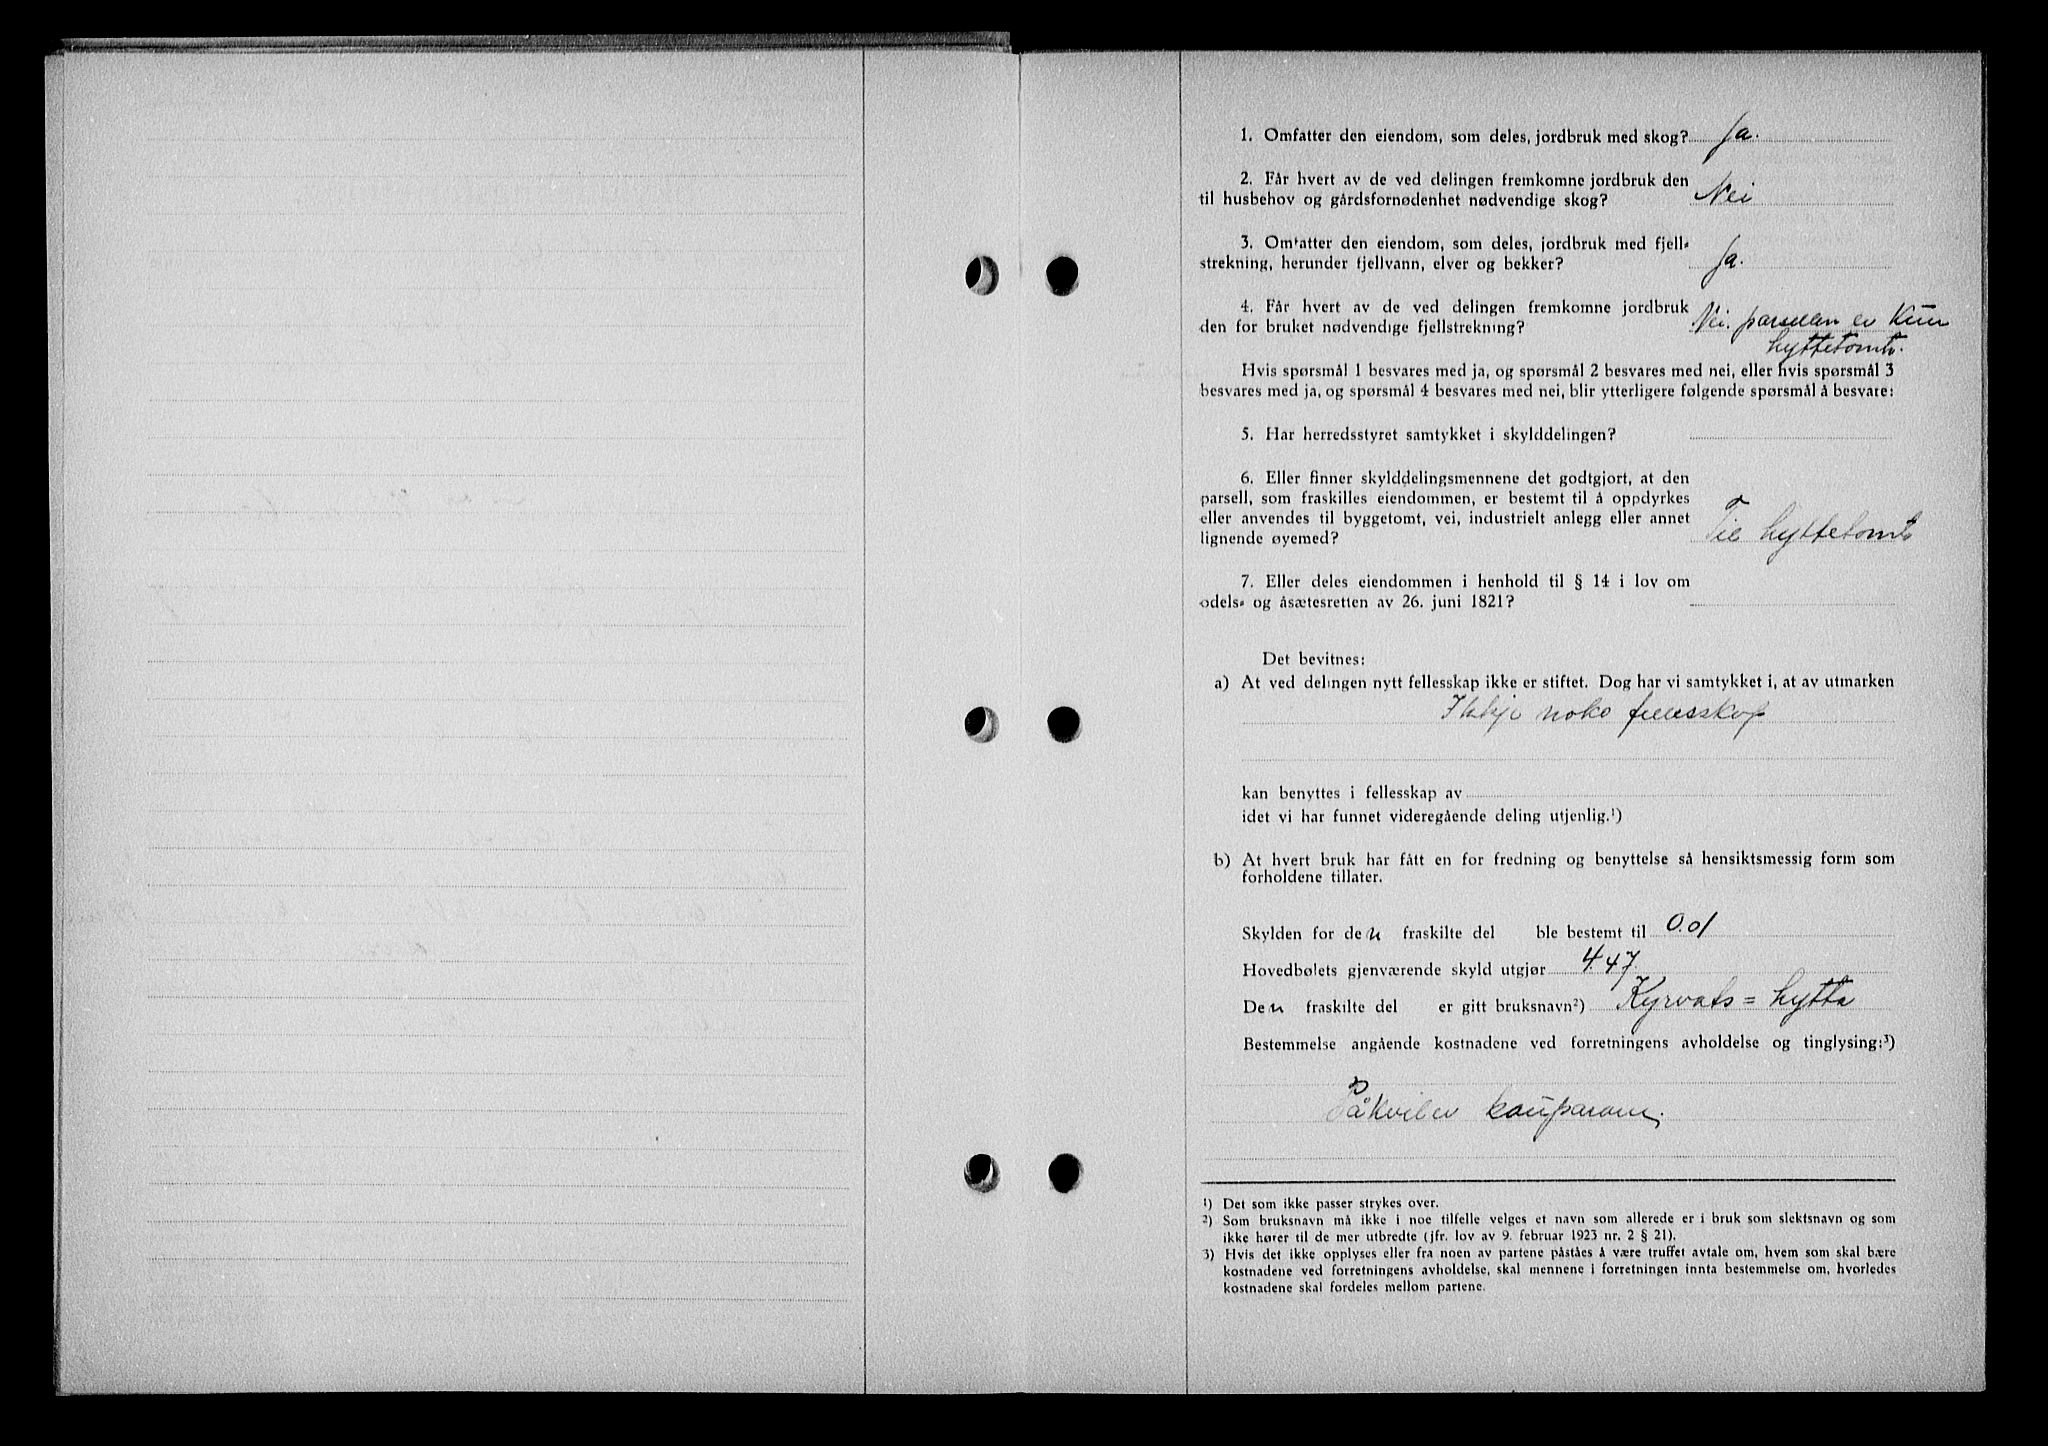 1. Omfatter den eiendom, som deles, jordbruk med skog? Ja.
2. Får hvert av de ved delingen fremkomne jordbruk den
til husbehov og gårdsfornødenhet nødvendige skog? Nei
3. Omfatter den eiendom, som deles, jordbruk med fjell-
strekning, herunder fjellvann, elver og bekker? Ja.
4. Får hvert av de ved delingen fremkomne jordbruk
den for bruket nødvendige fjellstrekning? Nei. parsellen er kun
hyttetomt.
Hvis spørsmål 1 besvares med ja, og spørsmål 2 besvares med nei, eller hvis spørsmål 3
besvares med ja, og spørsmål 4 besvares med nei, blir ytterligere følgende spørsmål å besvare:
5. Har herredsstyret samtykket i skylddelingen?
6. Eller finner skylddelingsmennene det godtgjort, at den
parsell, som fraskilles eiendommen, er bestemt til å oppdyrkes
eller anvendes til byggetomt, vei, industrielt anlegg eller annet
lignende øyemed? Til hyttetomt
7. Eller deles eiendommen i henhold til § 14 i lov om
odels- og åsætesretten av 26. juni 1821?
Det bevitnes:
a) At ved delingen nytt fellesskap ikke er stiftet. Dog har vi samtykket i, at av utmarken
Ikkje noko fellesskap
kan benyttes i fellesskap av
idet vi har funnet videregående deling utjenlig.¹)
b) At hvert bruk har fått en for fredning og benyttelse så hensiktsmessig form som
forholdene tillater.
Skylden for den fraskilte del ble bestemt til 0.01
Hovedbølets gjenværende skyld utgjør 4.47.
Den fraskilte del er gitt bruksnavn²) Kyrvats=hytta
Bestemmelse angående kostnadene ved forretningens avholdelse og tinglysing:³)
Påkviler kauparane.
¹) Det som ikke passer strykes over.
²) Som bruksnavn må ikke i noe tilfelle velges et navn som allerede er i bruk som slektsnavn og som
ikke hører til de mer utbredte (jfr. lov av 9. februar 1923 nr. 2 § 21).
³) Hvis det ikke opplyses eller fra noen av partene påståes å være truffet avtale om, hvem som skal bære
kostnadene ved forretningens avholdelse, skal mennene i forretningen innta bestemmelse om, hvorledes
kostnadene skal fordeles mellom partene.